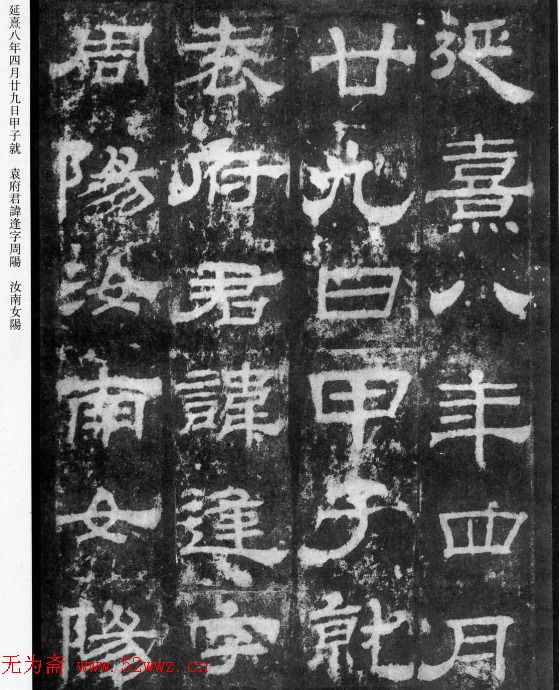 延熹八年四月
廿九日甲子就
袁府君諱逢字
周陽汝南女陽
延熹八年四月廿九日甲子就　袁府君諱逢字周陽　汝南女陽
无为斋 www.52wwz.cn